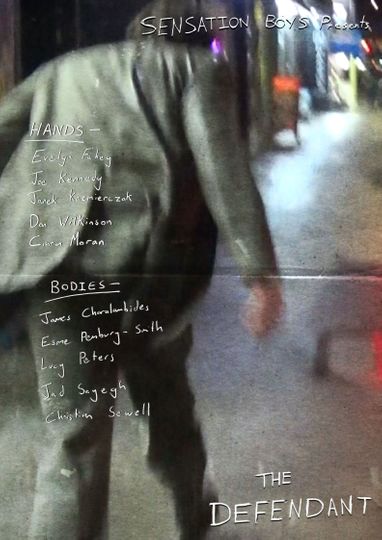 SENSATION BOYS Presents
HANDS —
Evelyn Fahey
Joe Kennedy
Janek Kazmierczak
Dan Wilkinson
Ciaran Moran
BODIES —
James Charalambides
Esme Pemburg-Smith
Lucy Peters
Jad Sayegh
Christian Sewell
THE
DEFENDANT